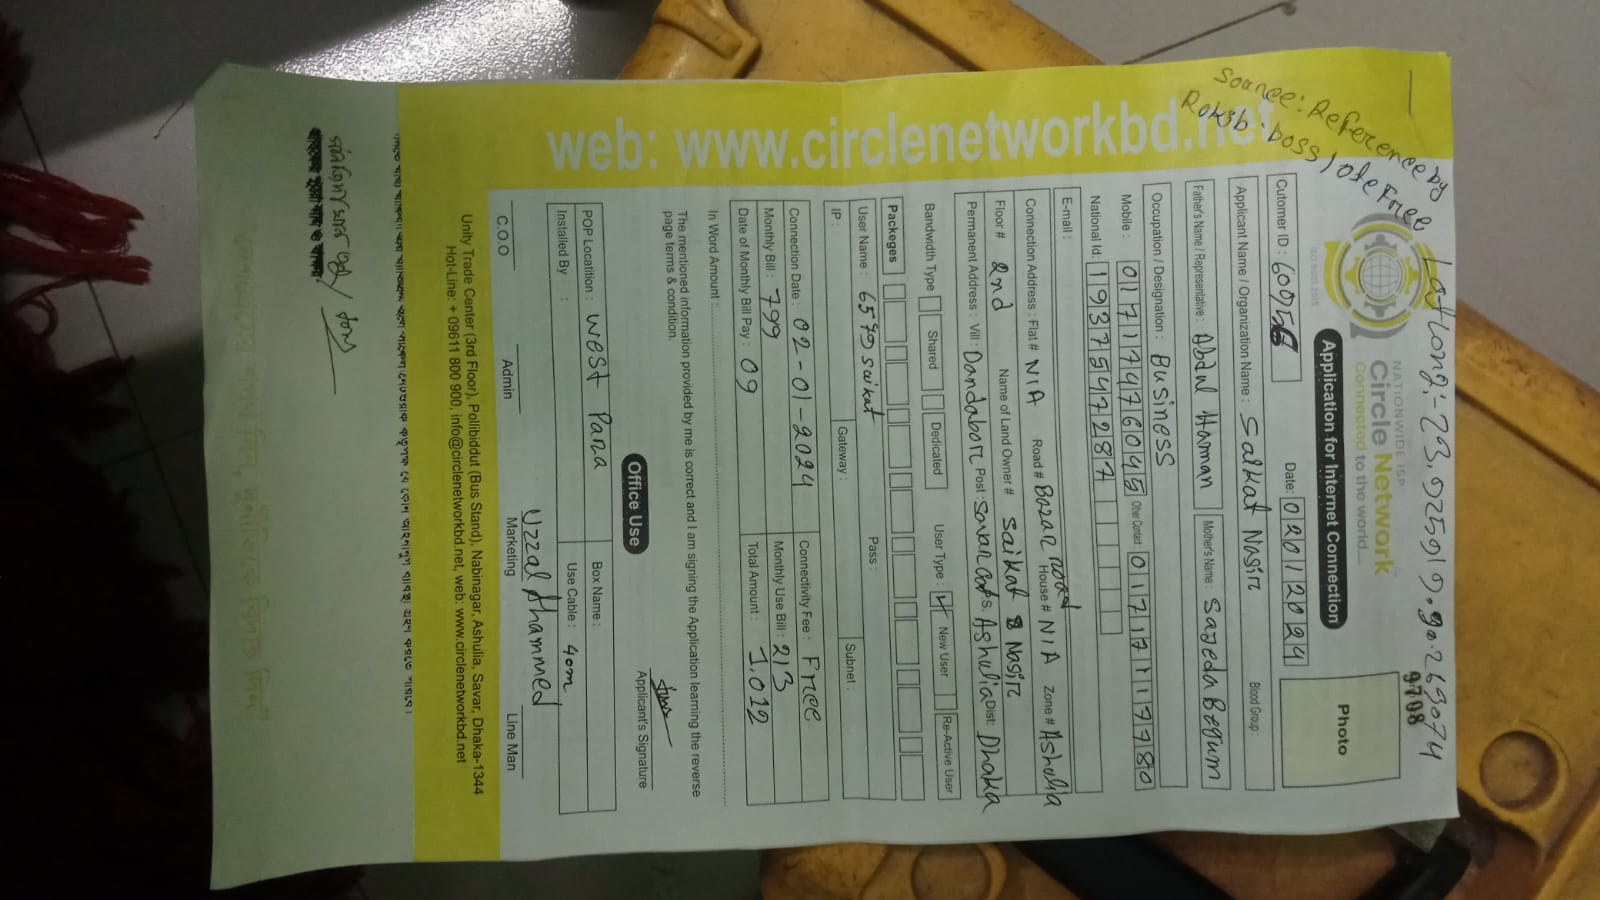 Lat Long:- 23.925919.90.269074
Source: Reference by
Rokib boss / ote Free
9708
NATIONWIDE ISP
Circle Network
Connected to the world....
ISO 9001:2015
Application for Internet Connection
Photo
Cutomer ID :
Date: 02012024
Applicant Name / Organization Name : Saikat Nasir
Blood Group :
Father's Name / Representative : Abdul Hannan
Mother's Name : Sajeda Begum
Occupation / Designation : Business
Mobile : 01717476045 Other Contact: 01717117780
National Id: 19375547287
E-mail :
Connection Address : Flat # N/A Road # Bazar road House # N/A Zone # Ashulia
Floor # 2nd Name of Land Owner # Saikat Nasir
Permanent Address : Vill : Dandaborr Post : Savar cant P.S. Ashulia Dist: Dhaka
Bandwidth Type Shared Dedicated User Type : New User Re-Active User
Packeges
User Name : 6579saikat Pass :
IP : Gateway : Subnet :
Connection Date : 02-01-2024 Connectivity Fee : Free
Monthly Bill : 799 Monthly Use Bill : 213
Date of Monthly Bill Pay : 09 Total Amount : 1,012
In Word Amount :
The mentioned information provided by me is correct and I am signing the Application learning the reverse
page terms & condition.
Applicant's Signature
Office Use
POP Locatition : West Para Box Name :
Installed By : Use Cable : 40m
Uzzal Ahammed
C.O.O Admin Marketing Line Man
Unity Trade Center (3rd Floor), Pollibiddut (Bus Stand), Nabinagar, Ashulia, Savar, Dhaka-1344
Hot-Line: + 09611 800 900, info@circlenetworkbd.net, web: www.circlenetworkbd.net
web: www.circlenetworkbd.net